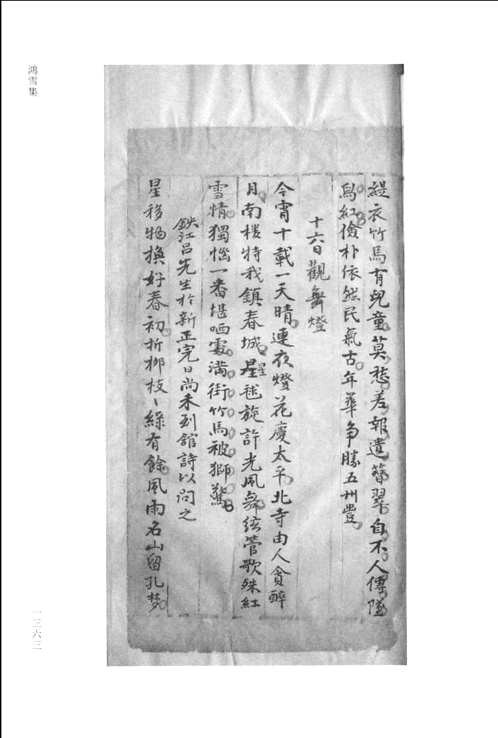 緹衣竹馬有兒童莫愁差報遺簪翠自不人傳墜
烏紅儉朴依然民氣古年華爭勝五州豐
十六日觀舞燈
今宵十載一天晴連夜燈花慶太平北寺由人貪醉
月南樓待我鎮春城星毬旋許光風無絃管歌殊紅
雪情獨惱一番堪哂處滿街竹馬被獅驚
鉄江呂先生於新正完日尚未到館詩以問之
星移物換好春初折柳枝、綠有餘風雨名山留孔梦
鴻雪集
一三六三